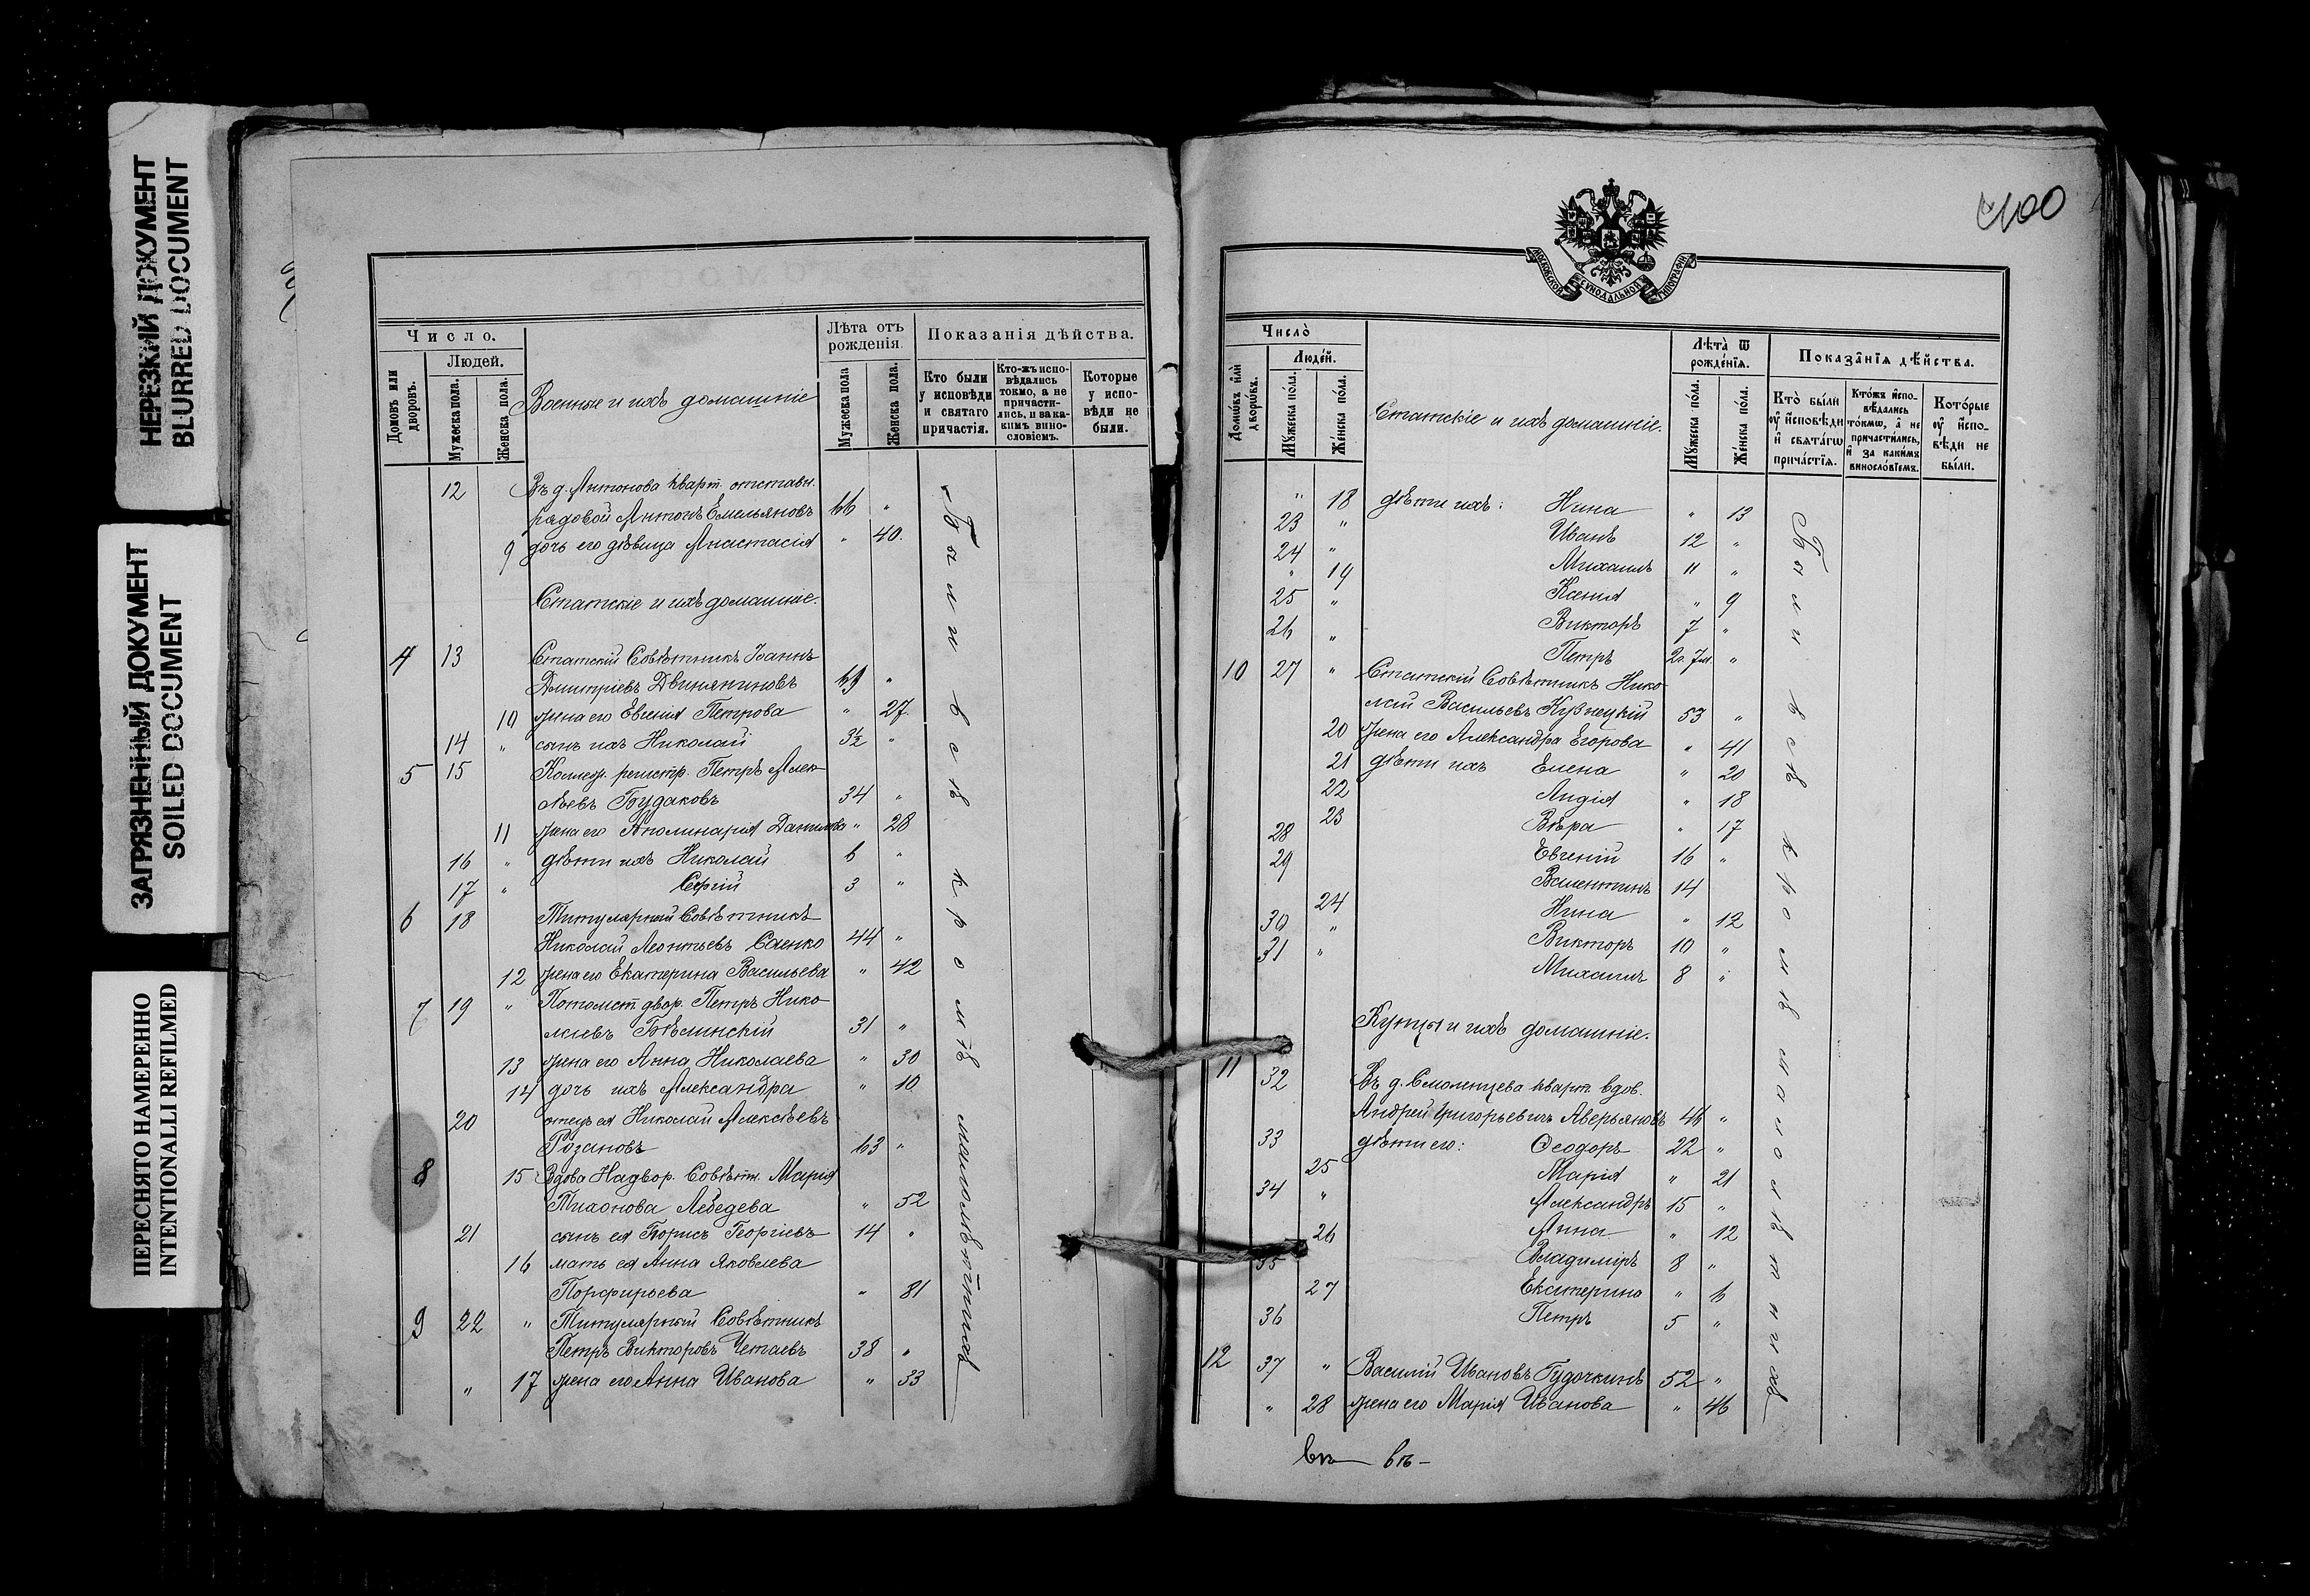 НЕРЕЗКИЙ ДОКУМЕНТ
BLURRED DOCUMENT
ЗАГРЯЗНЕННЫЙ ДОКУМЕНТ
SOILED DOCUMENT
ПЕРЕСНЯТО НАМЕРЕННО
INTENTIONALLI REFILMED
Число.
Людей.
Домовъ или дворовъ.
Мужеска пола.
Женска пола.
Военные и ихъ домашніе
Лѣта отъ рожденія.
Мужеска пола
Женска пола.
Показанія дѣйства.
Кто были у исповѣди и святаго причастія.
Кто-жъ исповѣдались токмо, а не причастились, и за какимъ винословіемъ.
Которые у исповѣди не были.
12 Въ д. Антонова кварт. отставн.
рядовой Антонъ Емельяновъ 66 "
9 дочь его дѣвица Анастасія " 40.
Статскіе и ихъ домашніе.
4 13 Статскій Совѣтникъ Іоаннъ
Дмитріевъ Двиняниновъ 69 "
10 жена его Евгенія Петрова " 27.
14 " сынъ ихъ Николай 3½ "
5 15 Коллеж. регистр. Петръ Алек-
сѣевъ Будаковъ 34 "
11 жена его Аполинарія Данилова " 28
16 " дѣти ихъ Николай 6 "
17 " Сергій 3 "
6 18 Титулярный Совѣтникъ
Николай Леонтьевъ Саенко 44 "
12 жена его Екатерина Васильева " 42
7 19 " Потомст. двор. Петръ Нико-
лаевъ Бѣлинскій 31 "
13 жена его Анна Николаева " 30
14 дочь ихъ Александра " 10
20 отецъ ея Николай Алексѣевъ
Розановъ 63 "
8 15 Вдова Надвор. Совѣтн. Марія
Тихонова Лебедева " 52
21 сынъ ея Борисъ Георгіевъ 14 "
16 мать ея Анна Яковлева
Порфирьева " 81
9 22 " Титулярный Совѣтникъ
Петръ Викторовъ Четаевъ 38 "
" 17 жена его Анна Иванова " 33
Были всѣ кромѣ малолѣтнихъ
100
МОСКОВСКОЙ СѴНОДАЛЬНОЙ ТИПОГРАФІИ
Число̀
Людей.
Домѡ́въ и҆лѝ дворѡ́въ.
Мꙋ́жеска по́ла.
Же́нска по́ла.
Статскіе и ихъ домашніе.
Лѣта̀ ѿ рожде́нїѧ.
Мꙋ́жеска по́ла.
Же́нска по́ла.
Показа̑нїѧ дѣ́йства.
Кто̀ бы́ли ᲂу҆ и҆сповѣди и҆ свѧта́гѡ прича́стїѧ.
Кто́жъ и҆сповѣдались то́кмѡ, а҆ не причасти́лись, и҆ за каки́мъ винослѡ́вїемъ.
Кото́рые ᲂу҆ и҆сповѣди не бы́ли.
" 18 дѣти ихъ: Нина " 13
23 " Иванъ 12 "
24 " Михаилъ 11 "
" 19 Ксенія " 9
25 " Викторъ 7 "
26 " Петръ 2г. 7м. "
10 27 " Статскій Совѣтникъ Нико-
лай Васильевъ Кузнецкій 53 "
20 жена его Александра Егорова " 41
21 дѣти ихъ Елена " 20
22 Лидія " 18
23 Вѣра " 17
28 Евгеній 16 "
29 Валентинъ 14
24 Нина " 12
30 " Викторъ 10 "
31 " Михаилъ 8 "
Купцы и ихъ домашніе.
11 32 Въ д. Смоленцева кварт. вдов.
Андрей Григорьевичъ Аверьяновъ 46 "
33 дѣти его: Ѳеодоръ 22 "
25 Марія " 21
34 " Александръ 15 "
26 Анна " 12
35 Владиміръ 8 "
27 Екатерина " 6
36 Петръ 5 "
12 37 " Василій Ивановъ Гудочкинъ 52 "
" 28 жена его Марія Иванова " 46
Были всѣ кромѣ малолѣтнихъ